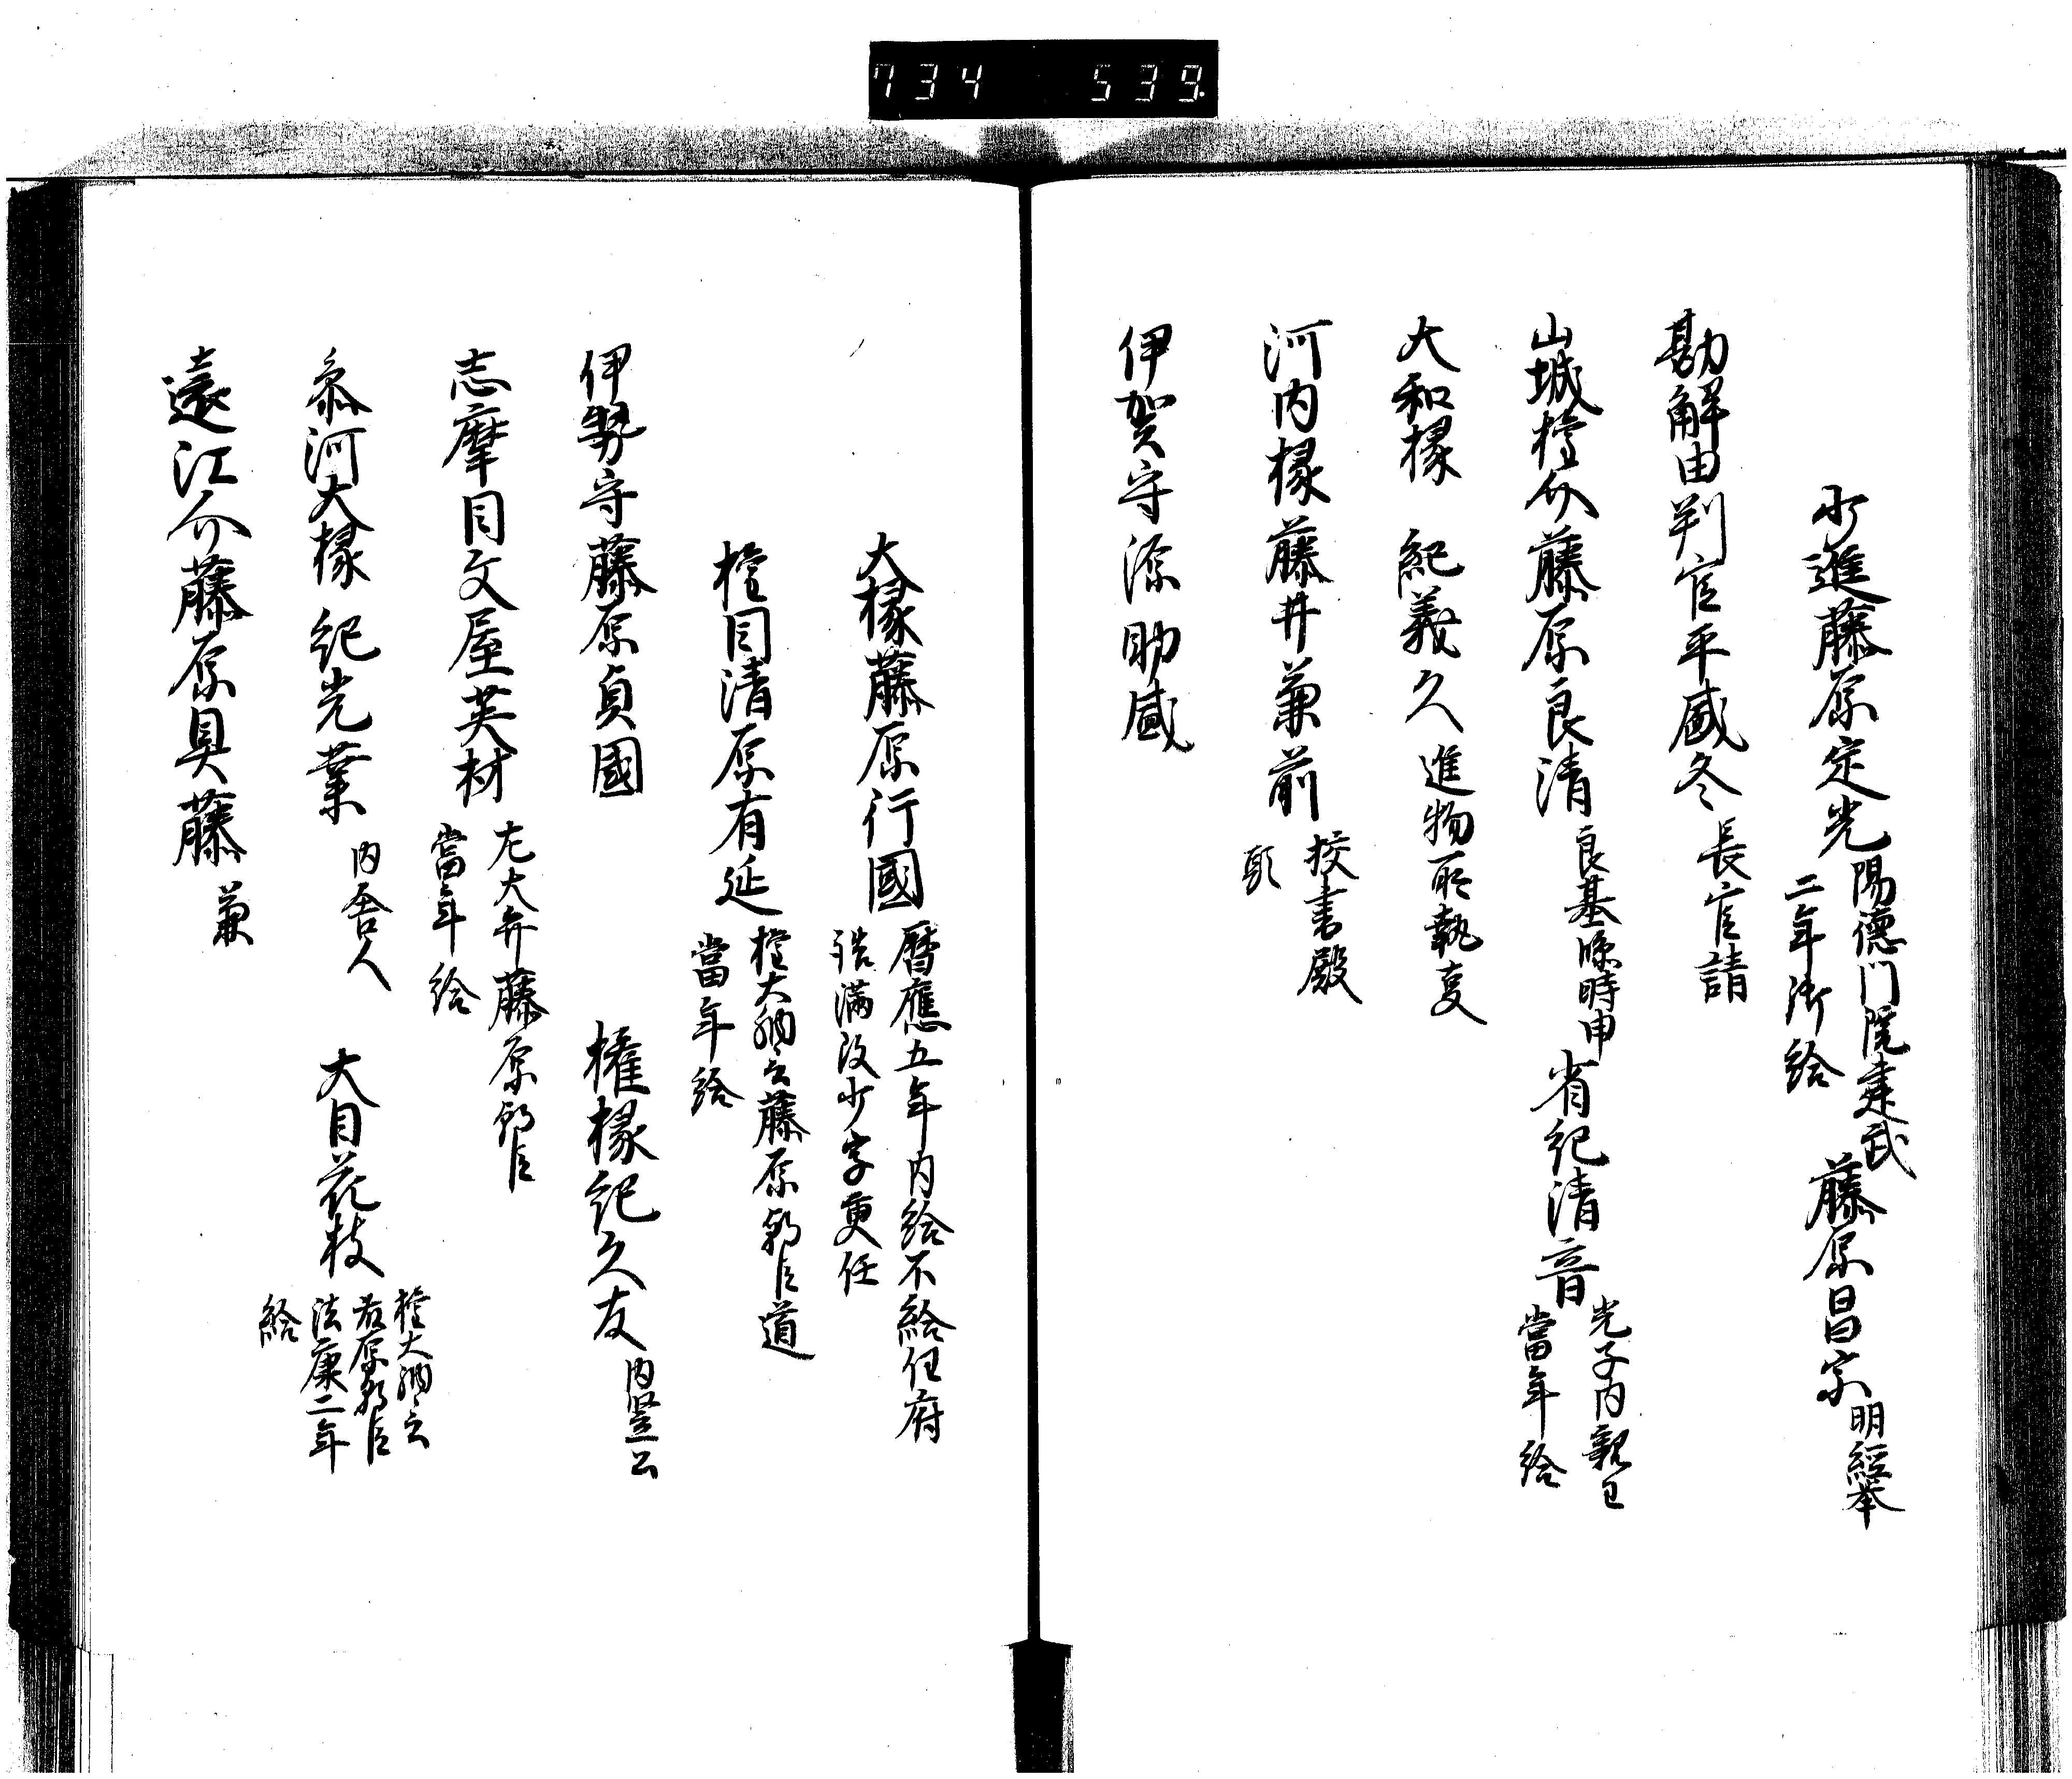 734 539
少進藤原定光 陽德門院建武
二年御給 藤原昌宗 明経挙
勘解由判官平盛冬 長官請
山城権介藤原良清 良基臨時申 省紀清音 光子内親王
當年給
大和掾 紀義久 進物所執事
河内掾藤井兼前 挍書殿
頭
伊賀守源助盛
大掾藤原行國 暦應五年内給不給任府
誥満改少字更任
権目清原有延 権大納言藤原朝臣道
當年給
伊勢守藤原貞國 権掾紀久友 内竪公
志摩目文屋英材 左大弁藤原朝臣
當年給
参河大掾 紀光業 内舎人 大目花枝 権大納言
藤原朝臣
法康二年
給
遠江介藤原具藤 兼